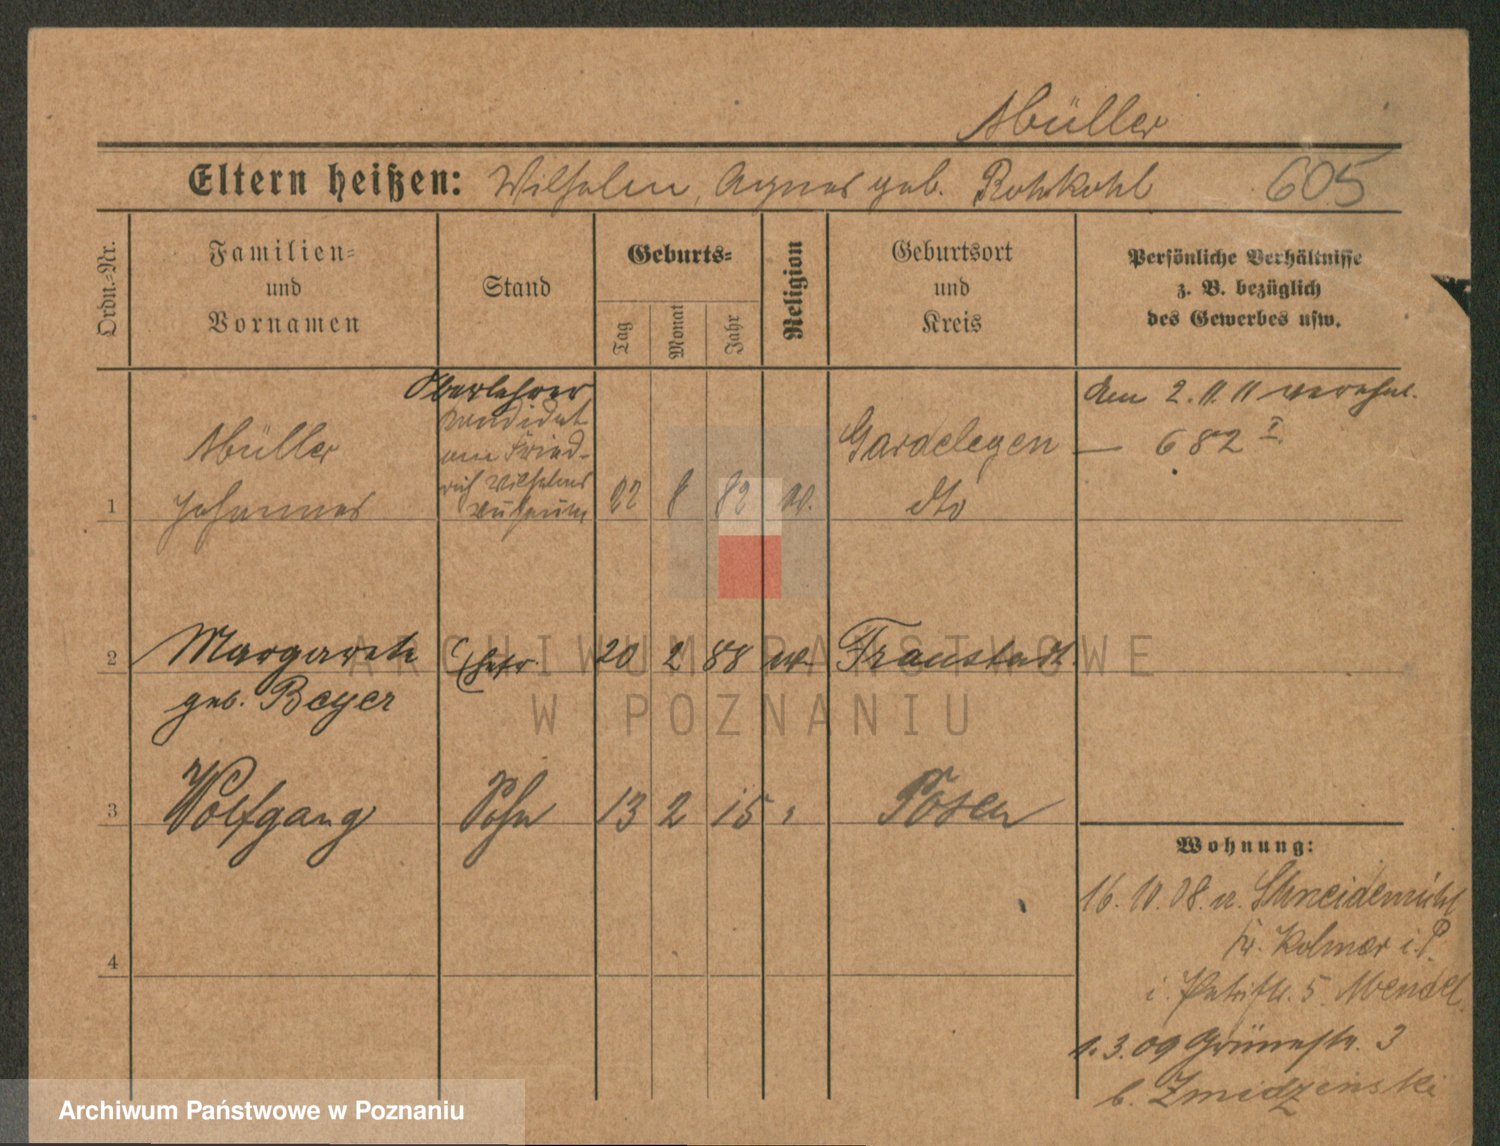 Müller
Eltern heißen: Wilhelm, Agnes geb. Rohrkohl 605
Ordn.-Nr.
Familien-
und
Vornamen
Stand
Geburts-
Tag
Monat
Jahr
Religion
Geburtsort
und
Kreis
Persönliche Verhältnisse
z. B. bezüglich
des Gewerbes usw.
1
Müller
Johannes
Oberlehrer
Kandidat
am Fried-
rich Wilhelms
22 8 82
Gardelegen
dto
Am 2. 11. 11 verehel.
— 682 I.
2 Margarete
geb. Beyer
Ehefr. 20 2 88 Fraustadt
3 Wolfgang Sohn 13 2 15 Posen
4
Wohnung:
16. 10. 08. n. Schneidemühl
Kr. Kolmar i. P.
5
1. 3. 09 Grünestr. 3
b. Zmidzinski
ARCHIWUM PAŃSTWOWE
W POZNANIU
Archiwum Państwowe w Poznaniu